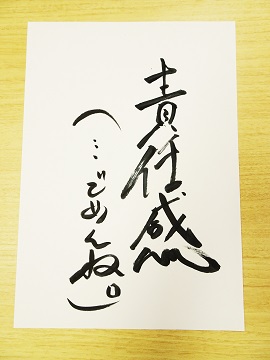 責任感
(…ごめんね。)